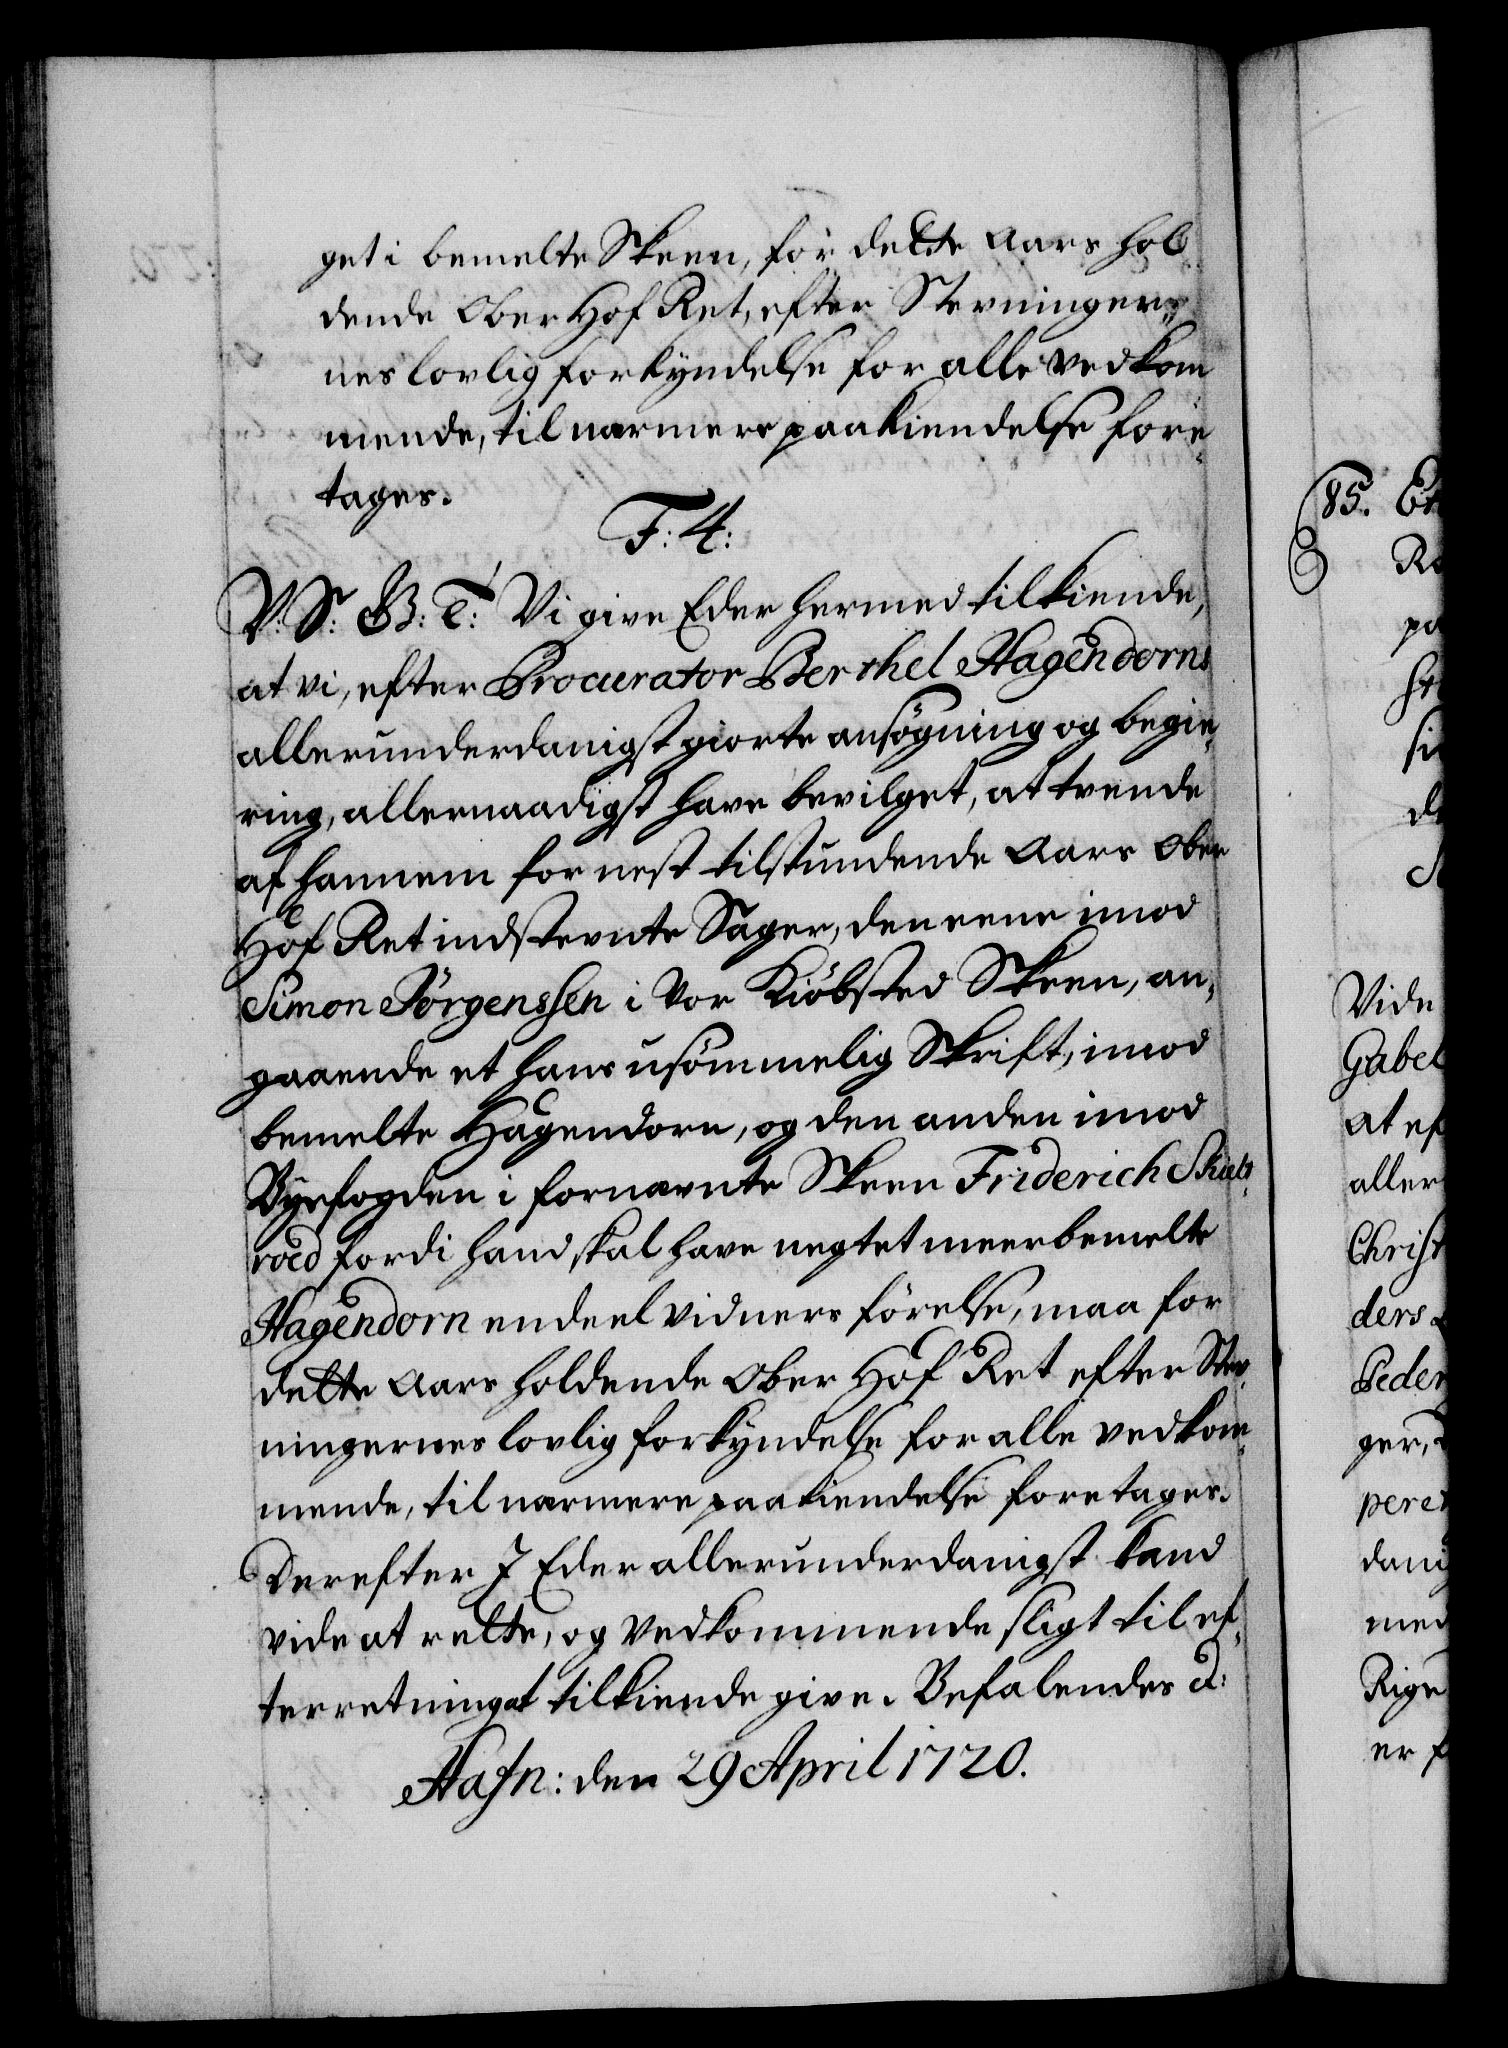 get i bemelte Skeen, for dette Aars hol
dende Ober Hof Ret, efter Stevninger-
nes lovlig forkyndelse for alle vedkom
mende, til nærmere paakiendelse fore-
tages.
F: 4:
V: S: G: T: Vi give Eder hermed tilkiende,
at vi, efter Procurator Berthel Hagendorns
allerunderdanigst giorte ansøgning og begie-
ring, allernaadigst have bevilget, at tvende
af hannem for nest tilstundende Aars Ober
Hof Ret indstevnte Sager, den eene imod
Simon Jörgenssen i Vor Kiöbsted Skeen, an-
gaaende et hans usömmelig Skrift, imod
bemelte Hagendorn, og den anden imod
Byefogden i fornævnte Skeen Friderich
fordi hand skal have negtet meerbemelte
Hagendorn endeel vidners förelse, maa for
dette Aars holdende Ober Hof Ret efter Stev-
ningernes lovlig forkyndelse for alle vedkom-
mende, til nærmere paakiendelse foretages.
Derefter I Eder allerunderdanigst kand
vide at rette, og vedkommende sligt til ef-
terretning at tilkiende give. Befalendes d:
Hafn: den 29 April 1720.
85. Et
pa
Vide
Gabel
At ef
aller
Christ
ders
Peder
ger,
pere
dani
med
Rige
er f